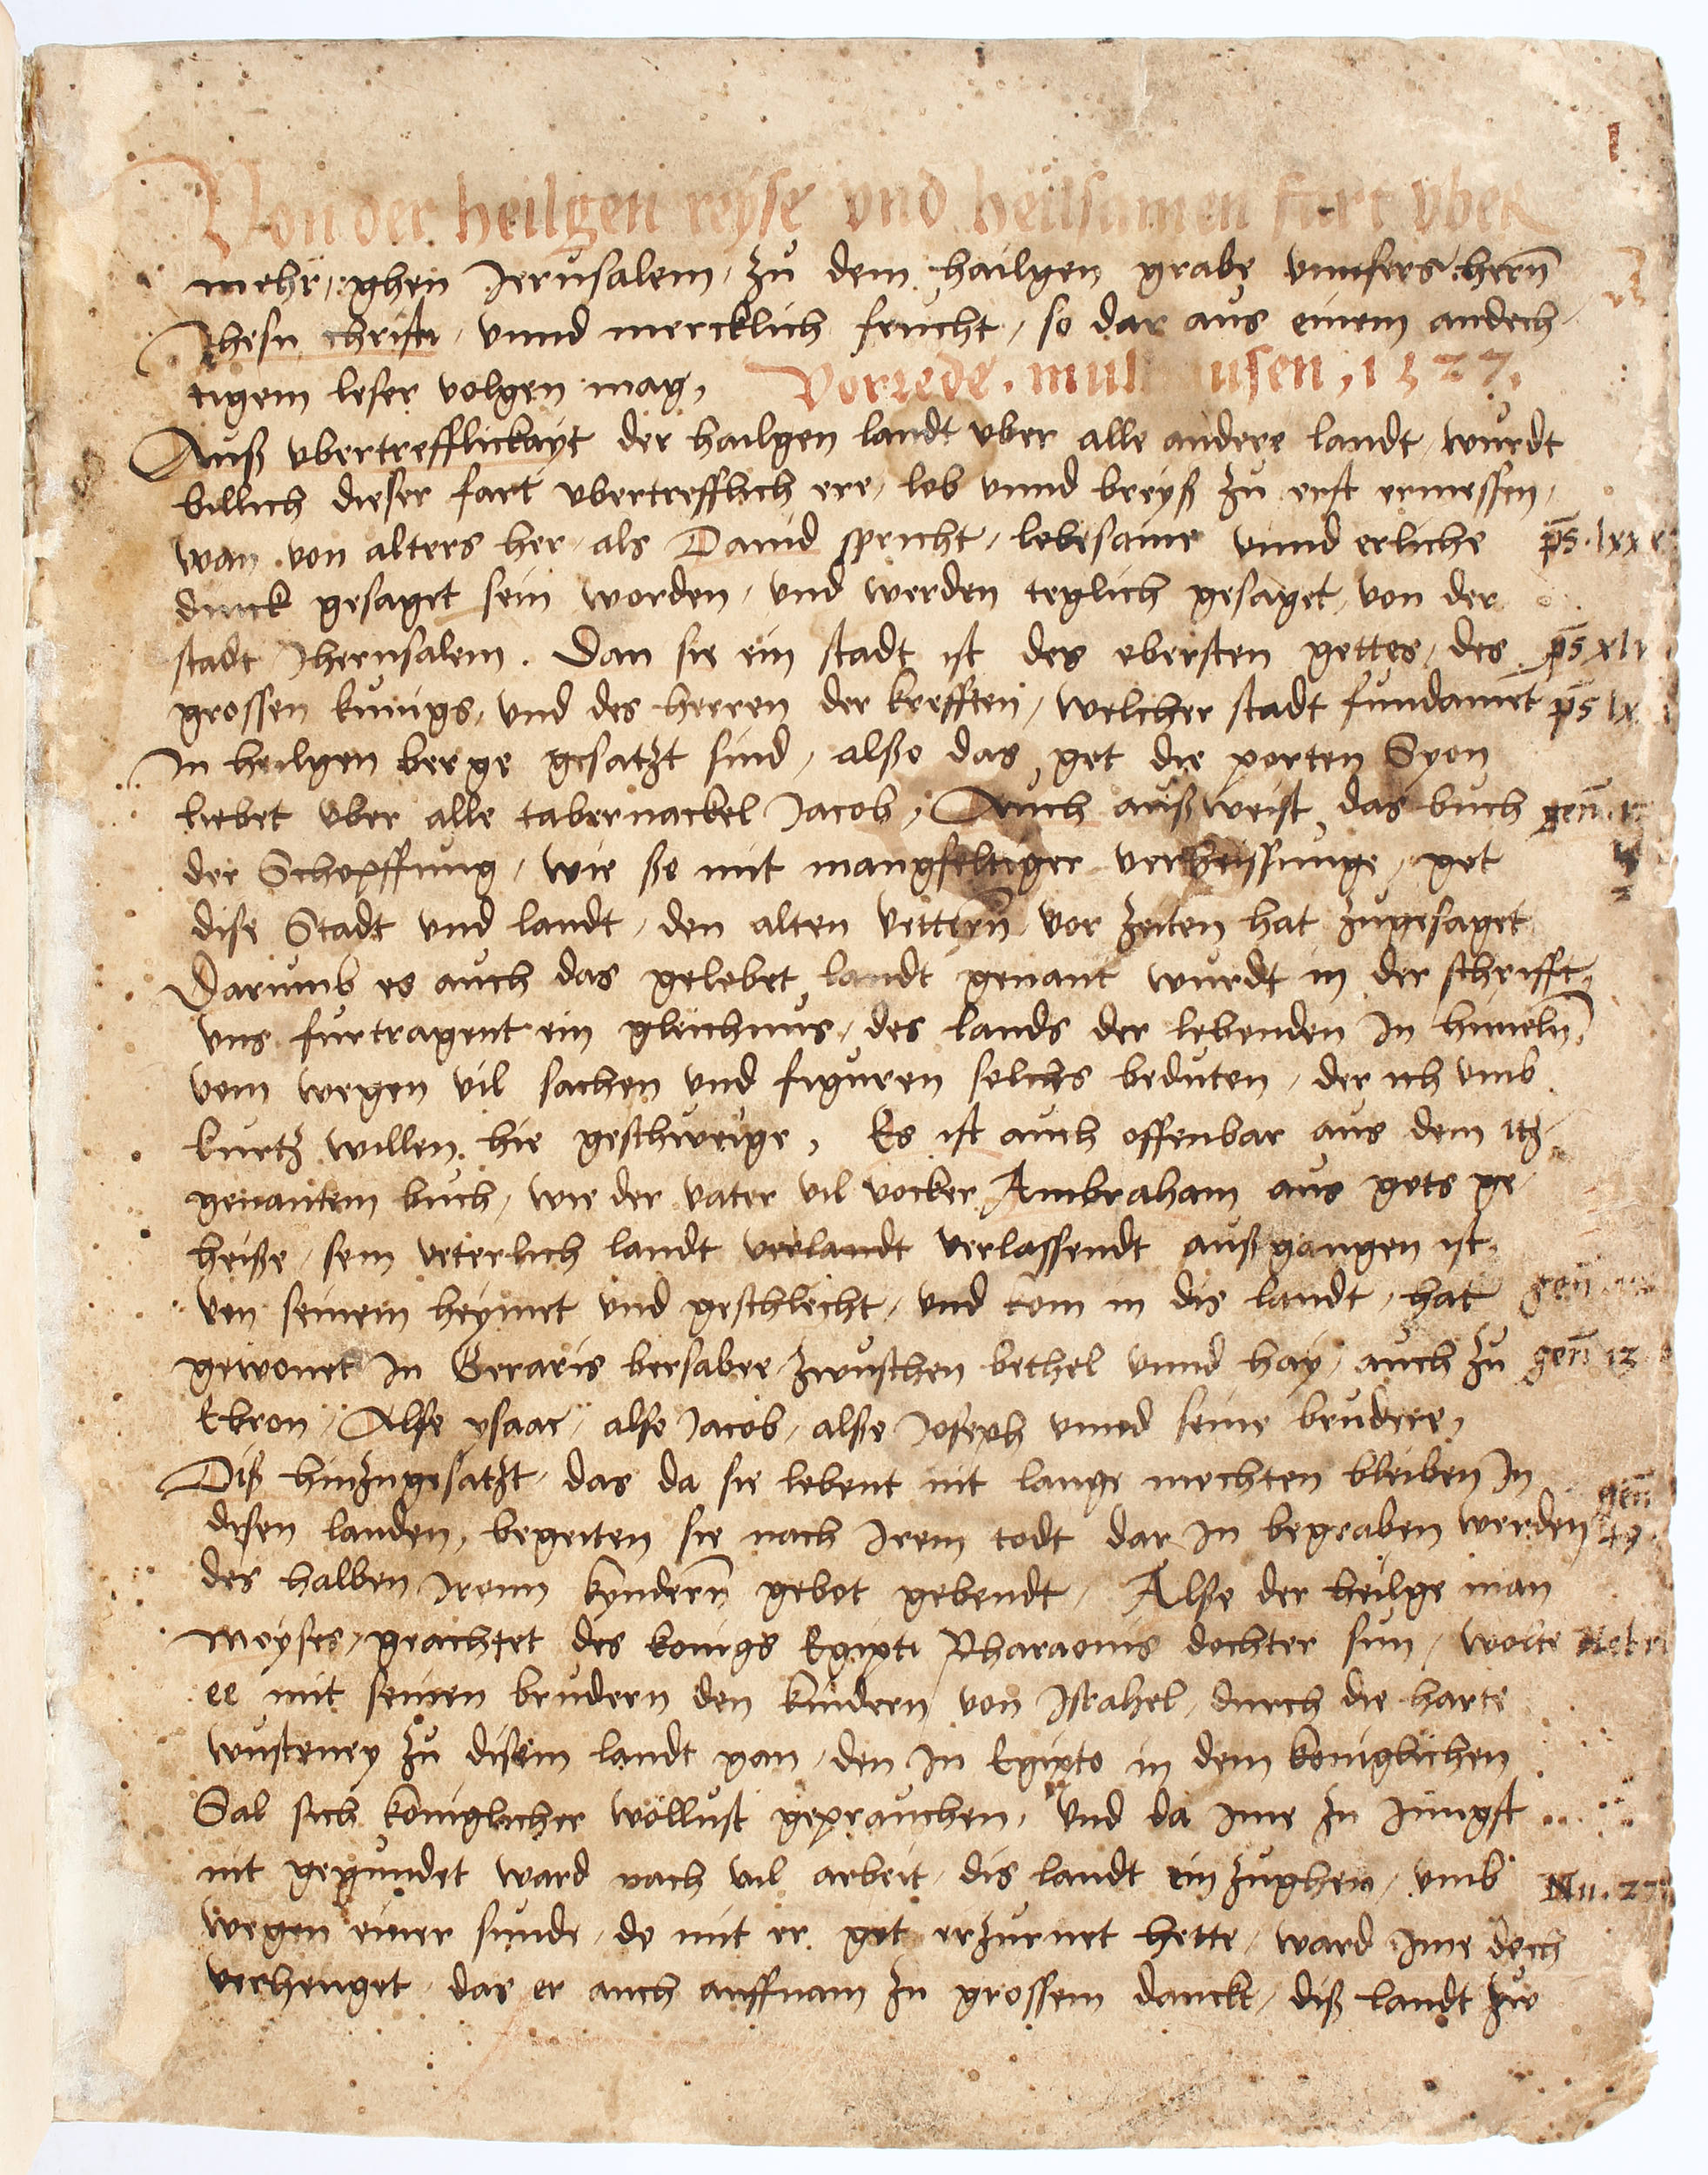 Von der heilgen reyse vnd heilsamen fart vber
mehr, ghen Jerusalem, zu dem hailgen grabe vnnsers hern̄
Jhesu christi, vnnd mercklich frucht, so dar aus einem andech-
tigem leser volgen mag, Vorrede. mul usen, 1527.
Auß vbertrefflickayt der hailgen landt vber alle andere landt, wurdt
billich dieser fart vbertrefflich ere, lob vnnd breyß zu erst ermessen,
wan von alters her, als Dauid spricht, lobesame vnnd erliche ps. lxxx
dinck gesaget sein worden, vnd werden teglich gesaget, von der
stadt Jherusalem. Dan sie ein stadt ist des obersten gottes, des ps xlv
grossen kunigs, vnd des herren der krefften, welcher stadt fundamēt ps lx
In heilgen berge gesatzt sind, alßo das got die porten Syon
liebet vber alle tabernackel Jacob, Auch außweist das buch gen̄.
der Schopffung, wie ßo mit mangfeltiger verheissunge, got
dise Stadt vnd landt, den alten vettern̄ vor zeiten hat zugesaget
Darumb es auch das gelobet landt genant wurdt in der schrifft,
vns furtragent ein gleichnus, des lands der lebenden In himeln̄,
vom wegen vil sachen vnd figuren solichs beduten, der ich vmb
kurtz willen hie geschweige, Es ist auch offenbar aus dem itz-
genantem buch, wie der vater vil vocker Ambraham aus gots ge-
heiße, sein veterlich landt verlandt verlassendt außgangen ist,
von seinem heymet vnd geschlecht, vnd kom in dis landt, hat gen̄
gewonet In Geraris bersabee zwuschen bethel vnnd hay, auch zu gen̄ 13
Ebron, Alse ysaac, alse Jacob, alße Joseph vnnd seine brudere,
Diß hinzugesatzt, das da sie lebent nit lange mochten bleiben In
disen landen, begerten sie nach Irem todt dar in begraben werden gen̄ 49.
des halben Irenn kyndern̄ gebot gebendt, Alße der heilge man
Moyses, geachtet des konigs Egipti Pharaonis dochter sun, wolte Hebr
ee mit seinen brudern den kindern von Israhel, durch die harte
wusteney zu disem landt gan, den In Egipto in dem koniglichen
Sal sich koniglicher wollust geprauchen, Vnd da ime zu jungst
nit gegundet ward nach vil arbeit, dis landt ein zughen, vmb Nu. 27
wegen einer sunde, do mit er got erzurnet hette, ward ime doch
verhenget, das er auch auffnam zu grossem danckt, diß landt zw